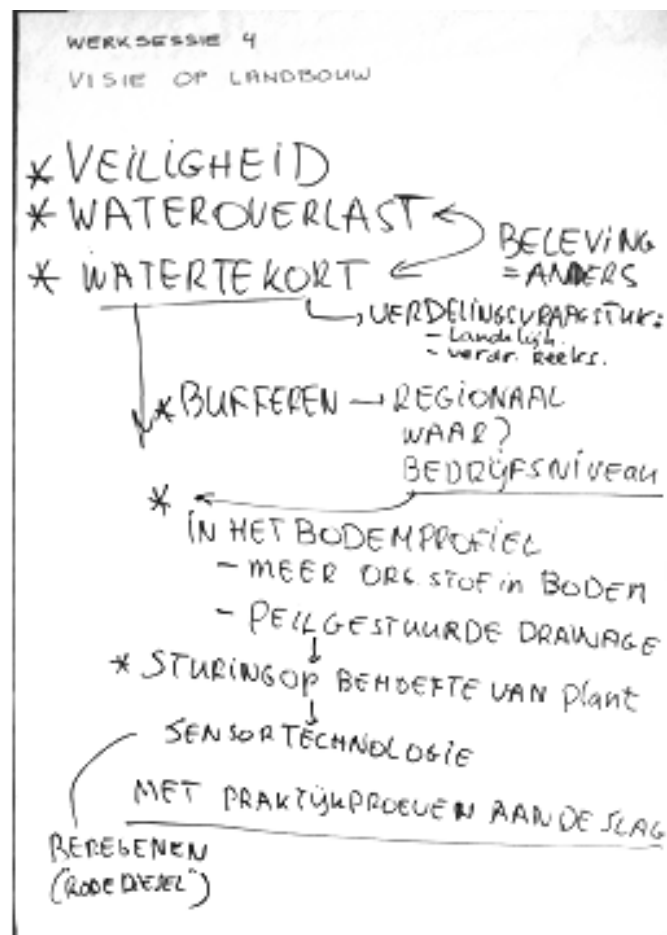 WERKSESSIE 4
VISIE OP LANDBOUW
* VEILIGHEID
* WATEROVERLAST
* WATERTEKORT
BELEVING
= ANDERS
VERDELINGSVRAAGSTUK:
- Landelijk.
- verdr. Reeks.
* BUFFEREN → REGIONAAL
WAAR?
BEDRIJFSNIVEAU
*
IN HET BODEMPROFIEL
- MEER ORG. STOF in BODEM
- PEILGESTUURDE DRAINAGE
* STURING OP BEHOEFTE VAN plant
SENSORTECHNOLOGIE
MET PRAKTIJKPROEVEN AAN DE SLAG
BEREGENEN
("RODE DIESEL")